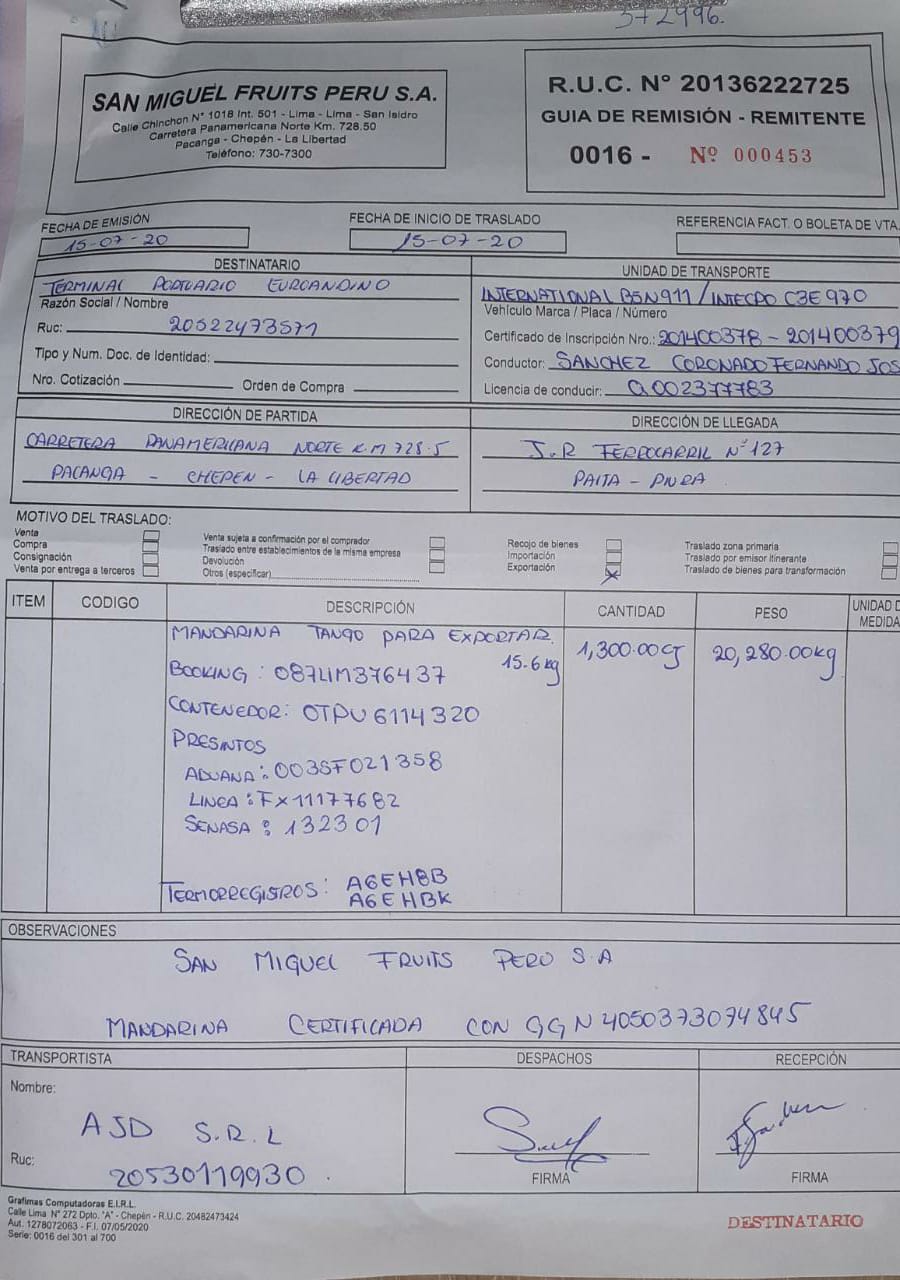 372996.
SAN MIGUEL FRUITS PERU S.A.
Calle Chinchon N° 1018 Int. 501 - Lima - Lima - San Isidro
Carretera Panamericana Norte Km. 728.50
Pacanga - Chepén - La Libertad
Teléfono: 730-7300
R.U.C. N° 20136222725
GUIA DE REMISIÓN - REMITENTE
0016 - Nº 000453
FECHA DE EMISIÓN
15-07-20
FECHA DE INICIO DE TRASLADO
15-07-20
REFERENCIA FACT. O BOLETA DE VTA.
DESTINATARIO
TERMINAL PORTUARIO EUROANDINO
Razón Social / Nombre
Ruc: 20522473571
Tipo y Num. Doc. de Identidad:
Nro. Cotización Orden de Compra
UNIDAD DE TRANSPORTE
INTERNATIONAL B5N911 / INTECPO C3E970
Vehículo Marca / Placa / Número
Certificado de Inscripción Nro.: 201400378 - 201400379
Conductor: SANCHEZ CORONADO FERNANDO JOS
Licencia de conducir: Q002377783
DIRECCIÓN DE PARTIDA
CARRETERA PANAMERICANA NORTE K.M 728.5
PACANGA - CHEPEN - LA LIBERTAD
DIRECCIÓN DE LLEGADA
J.R FERROCARRIL N° 127
PAITA - PIURA
MOTIVO DEL TRASLADO:
Venta
Compra
Consignación
Venta por entrega a terceros
Venta sujeta a confirmación por el comprador
Traslado entre establecimientos de la misma empresa
Devolución
Otros (especificar)
Recojo de bienes
Importación
Exportación X
Traslado zona primaria
Traslado por emisor itinerante
Traslado de bienes para transformación
ITEM CODIGO DESCRIPCIÓN CANTIDAD PESO UNIDAD D
MEDIDA
MANDARINA TANGO PARA EXPORTAR. 1,300.00CJ 20,280.00kg
15.6kg
BOOKING : 087LIM376437
CONTENEDOR: OTPU 6114320
PRESINTOS
ADUANA : 003SF021358
LINEA : FX11177682
SENASA : 132301
TERMORREGISTROS: A6EH8B
A6EHBK
OBSERVACIONES
SAN MIGUEL FRUITS PERU S.A
MANDARINA CERTIFICADA CON GGN 4050373074845
TRANSPORTISTA
Nombre:
AJD S.R.L
Ruc:
20530119930.
DESPACHOS
FIRMA
RECEPCIÓN
FIRMA
Grafimas Computadoras E.I.R.L.
Calle Lima N° 272 Dpto. "A" - Chepén - R.U.C. 20482473424
Aut. 1278072063 - F.I. 07/05/2020
Serie: 0016 del 301 al 700
DESTINATARIO